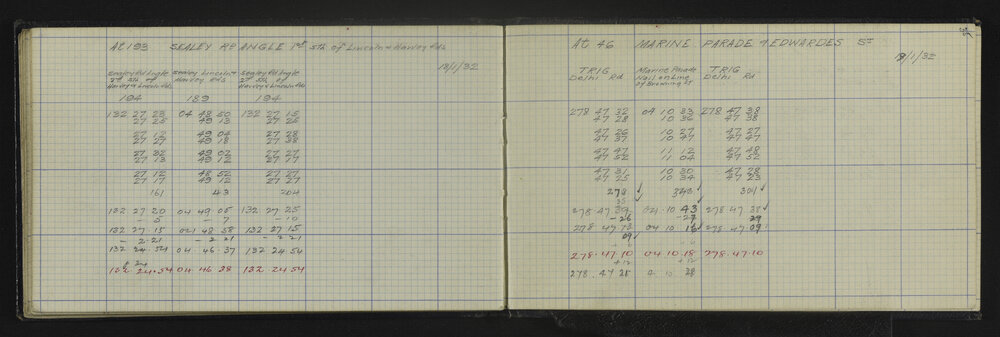 At 193 SEALEY RD ANGLE 1st Sth of Lincoln & Harley Rds
18/1/32
Sealey Rd Angle Sealey Lincoln & Sealey Rd Angle
2nd Sth of Harvey Rds 2nd Sth of
Harvey & Lincoln Rds Harvey & Lincoln Rds
194 189 194
132 27 23 04 48 50 132 27 15
27 25 49 13 27 25
27 12 49 04 27 28
27 27 49 18 27 38
27 32 49 02 27 27
27 13 49 12 27 17
27 12 48 52 27 27
27 17 49 12 27 27
161 43 204
132 27 20 04 49 05 132 27 25
- 5 - 7 - 10
132 27 15 04 48 58 132 27 15
- 2 21 - 2 21 - 2 21
132 24 54 04 46 37 132 24 54
132 24 54 04 46 38 132 24 54
At 46 MARINE PARADE & EDWARDES ST
18/1/32
TRIG Marine Parade TRIG
Delhi Rd Nail on Line Delhi Rd
of Browning St
278 47 32 04 10 33 278 47 38
47 28 10 32 47 38
47 26 10 27 47 27
47 37 10 47 47 47
47 47 11 12 47 48
47 52 11 04 47 52
47 31 10 30 47 28
47 25 10 34 47 23
278 348 301
278 47 04 10 43 278 47 38
-26 -27 29
278 47 04 10 16 278 47 09
09
278 47 10 04 10 18 278 47 10
+12
278 47 10 28